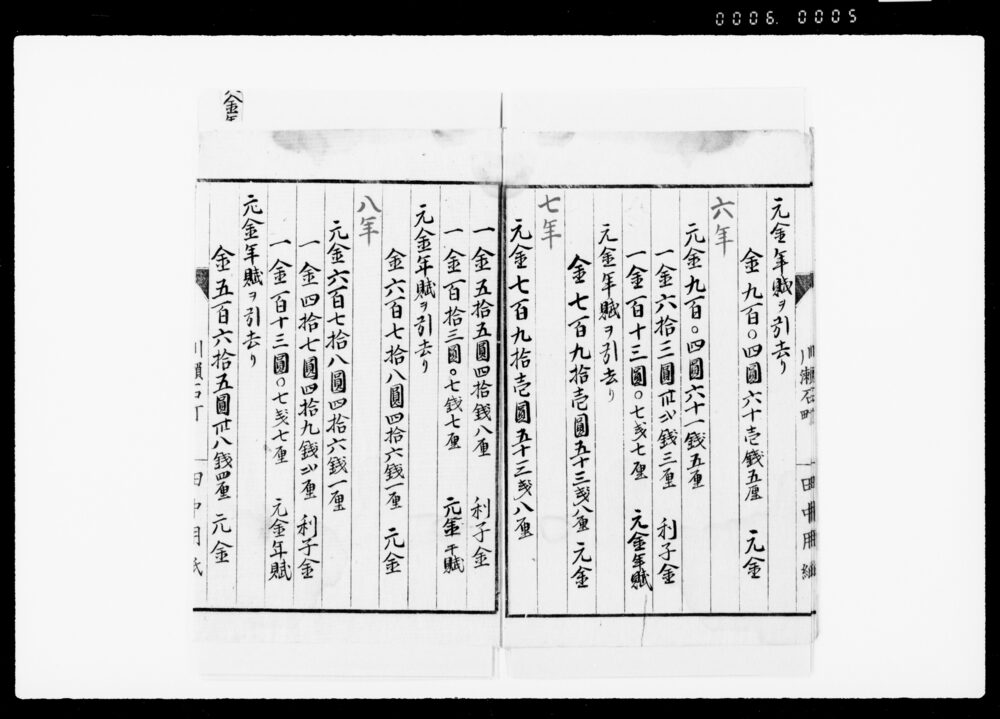 0006. 0005
川瀬石町 田中用紙
元金年賦ヲ引去り
金九百〇四圓六十壱銭五厘 元金
六年
元金九百〇四圓六十一銭五厘
一金六拾三圓丗弐銭三厘 利子金
一金百十三圓〇七銭七厘 元金年賦
元金年賦ヲ引去り
金七百九拾壱圓五十三銭八厘 元金
七年
元金七百九拾壱圓五十三銭八厘
一金五拾五圓四拾銭八厘 利子金
一金百拾三圓〇七銭七厘 元金年賦
元金年賦ヲ引去り
金六百七拾八圓四拾六銭一厘 元金
八年
元金六百七拾八圓四拾六銭一厘
一金四拾七圓四拾九銭弐厘 利子金
一金百十三圓〇七銭七厘 元金年賦
元金年賦ヲ引去り
金五百六拾五圓丗八銭四厘 元金
川瀬石町 田中用紙